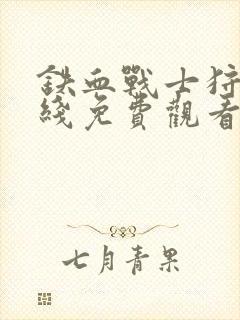 鉄血戰士狩
綫免費觀看
七月青果